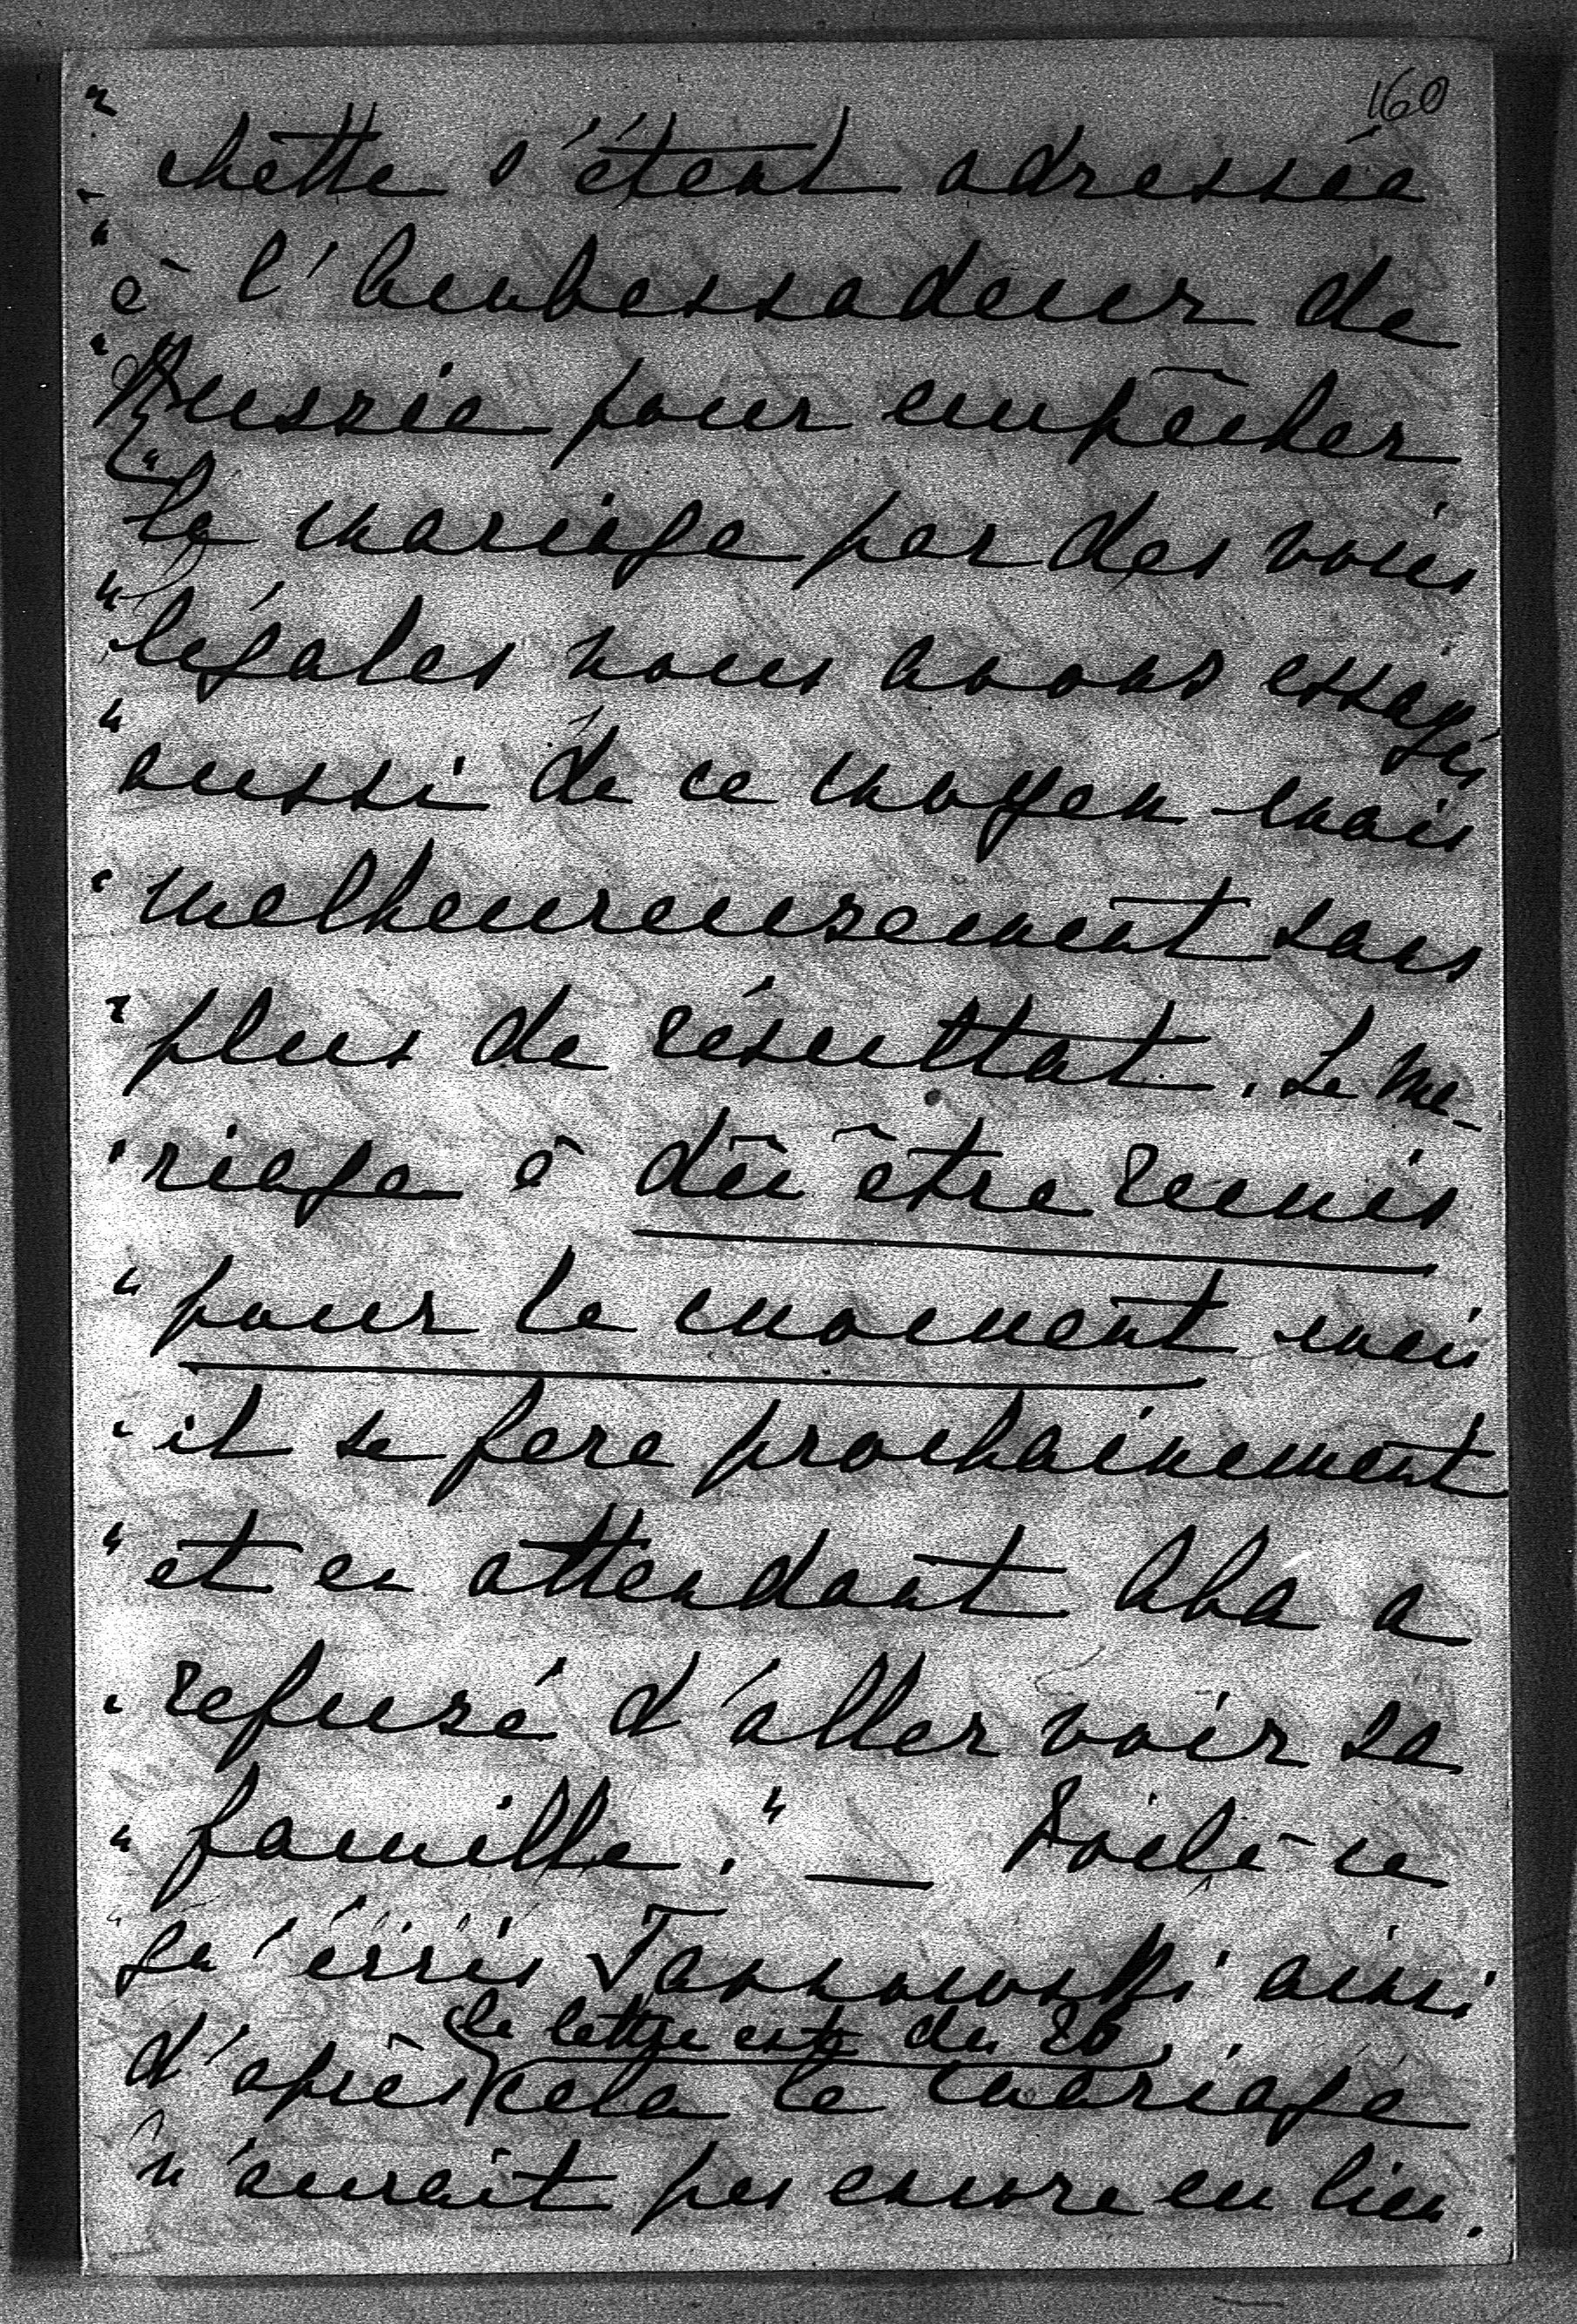 160
" chette s'étant adressée
" à l'Ambassadeur de
" Russie pour empêcher
" le mariage par des voies
" légales nous avons essayés
" aussi de ce moyen mais
" malheureusement sans
" plus de résultat. Le ma-
" riage à dû être remis
" pour le moment mais
" il se fera prochainement
" et en attendant Aba a
" refusé d'aller voir sa
" famille." — Voilà ce
qu'écris Tarnowski ainsi
(la lettre est du 20)
d'après cela le mariage
n'aurait pas encore eu lieu.